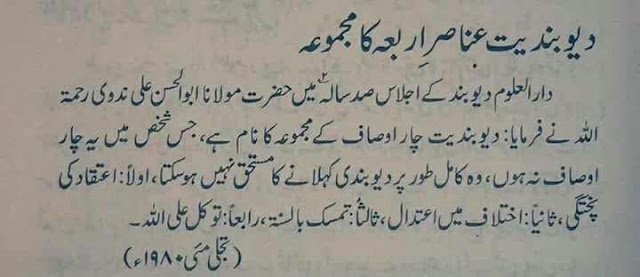 دیوبندیت عناصرِ اربعہ کا مجموعہ
دارالعلوم دیوبند کے اجلاس صد سالہ میں حضرت مولانا ابوالحسن علی ندوی رحمۃ
اللہ نے فرمایا: دیوبندیت چار اوصاف کے مجموعہ کا نام ہے، جس شخص میں یہ چار
اوصاف نہ ہوں، وہ کامل طور پر دیوبندی کہلانے کا مستحق نہیں ہوسکتا، اولاً: اعتقاد کی
پختگی، ثانیاً: اختلاف میں اعتدال، ثالثاً: تمسک بالسنۃ، رابعاً: توکل علی اللہ۔
(تجلی مئی ۱۹۸۰ء)